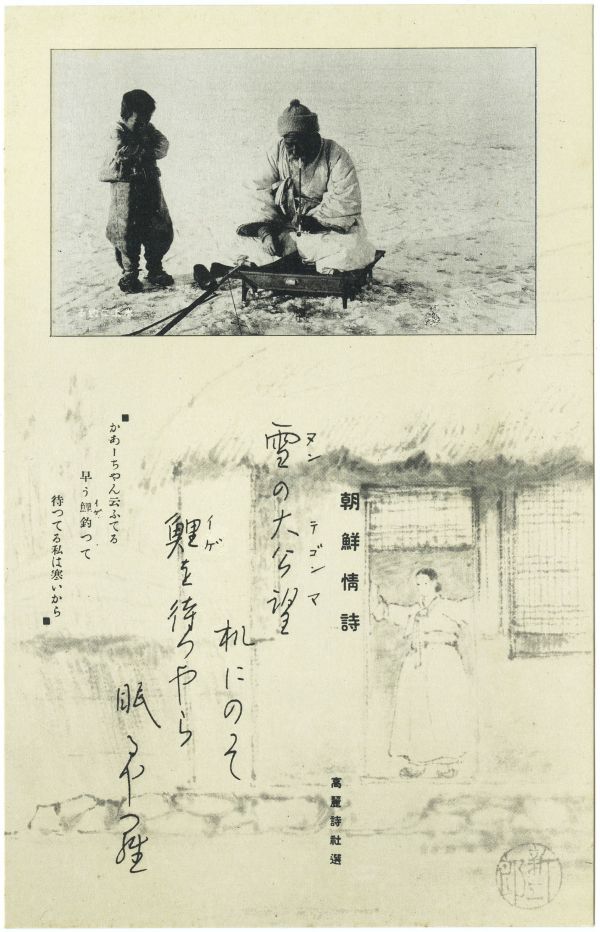 朝鮮情詩
高麗詩社選
ヌン テゴンマ
雪の大公望
机にのそ
イゲ
鯉を待つやら
眠るや
■かあーちやん云ふてる
イゲ
早う鯉釣つて
待つてる私は寒いから■